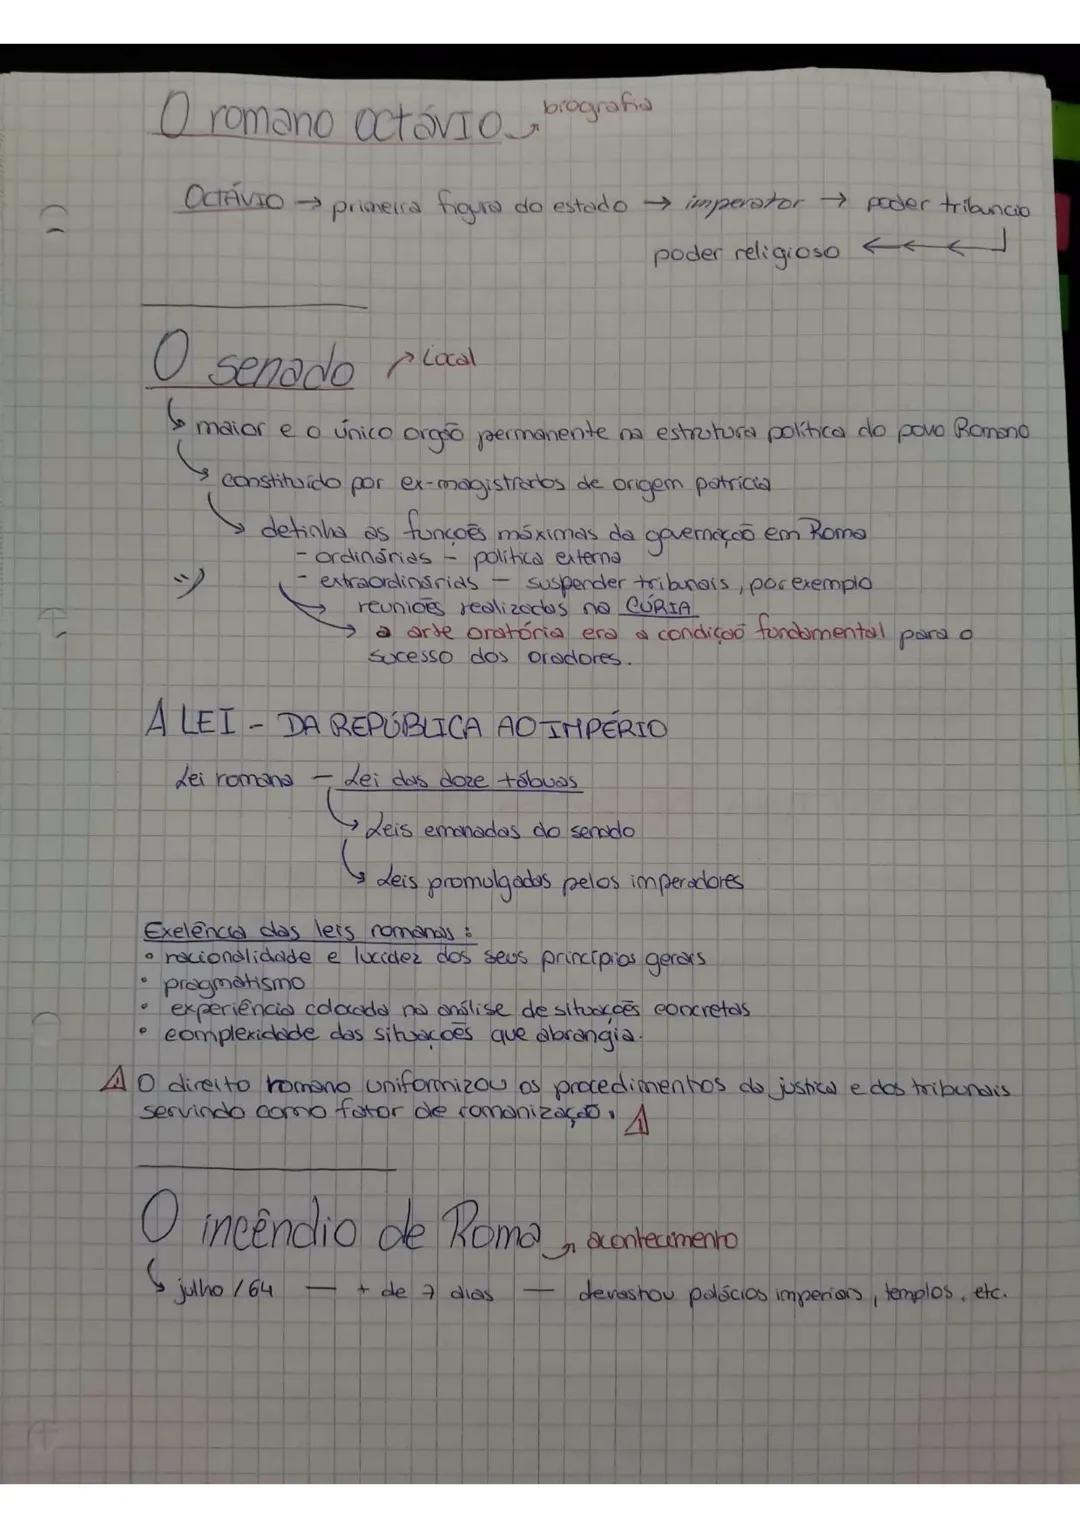 O romano octávIO → biografia
OCTÁVIO → primeira figura do estado → imperator → poder tribuncio
poder religioso ←←←
O senado → Local
↳ maior e o único orgão permanente na estrutura política do povo Romano
↳ constituído por ex-magistrados de origem patrícia
↳ detinha as funções máximas da governação em Roma
- ordinárias - política externa
- extraordinárias - suspender tribunais, por exemplo
→ reuniões realizadas na CÚRIA
→ a arte oratória era a condição fundamental para o
sucesso dos oradores.
A LEI - DA REPÚBLICA AO IMPÉRIO
Lei romana - Lei das doze tábuas
↳ Leis emanadas do senado
↳ Leis promulgadas pelos imperadores
Exelência das leis romanas:
• racionalidade e lucidez dos seus princípios gerais
• pragmatismo
• experiência colocada na análise de situações concretas
• complexidade das situações que abrangia.
⚠ O direito romano uniformizou os procedimentos da justica e dos tribunais
servindo como fator de romanização. ⚠
O incêndio de Roma → acontecimento
↳ julho / 64 - + de 7 dias - devastou palácios imperiais, templos, etc.